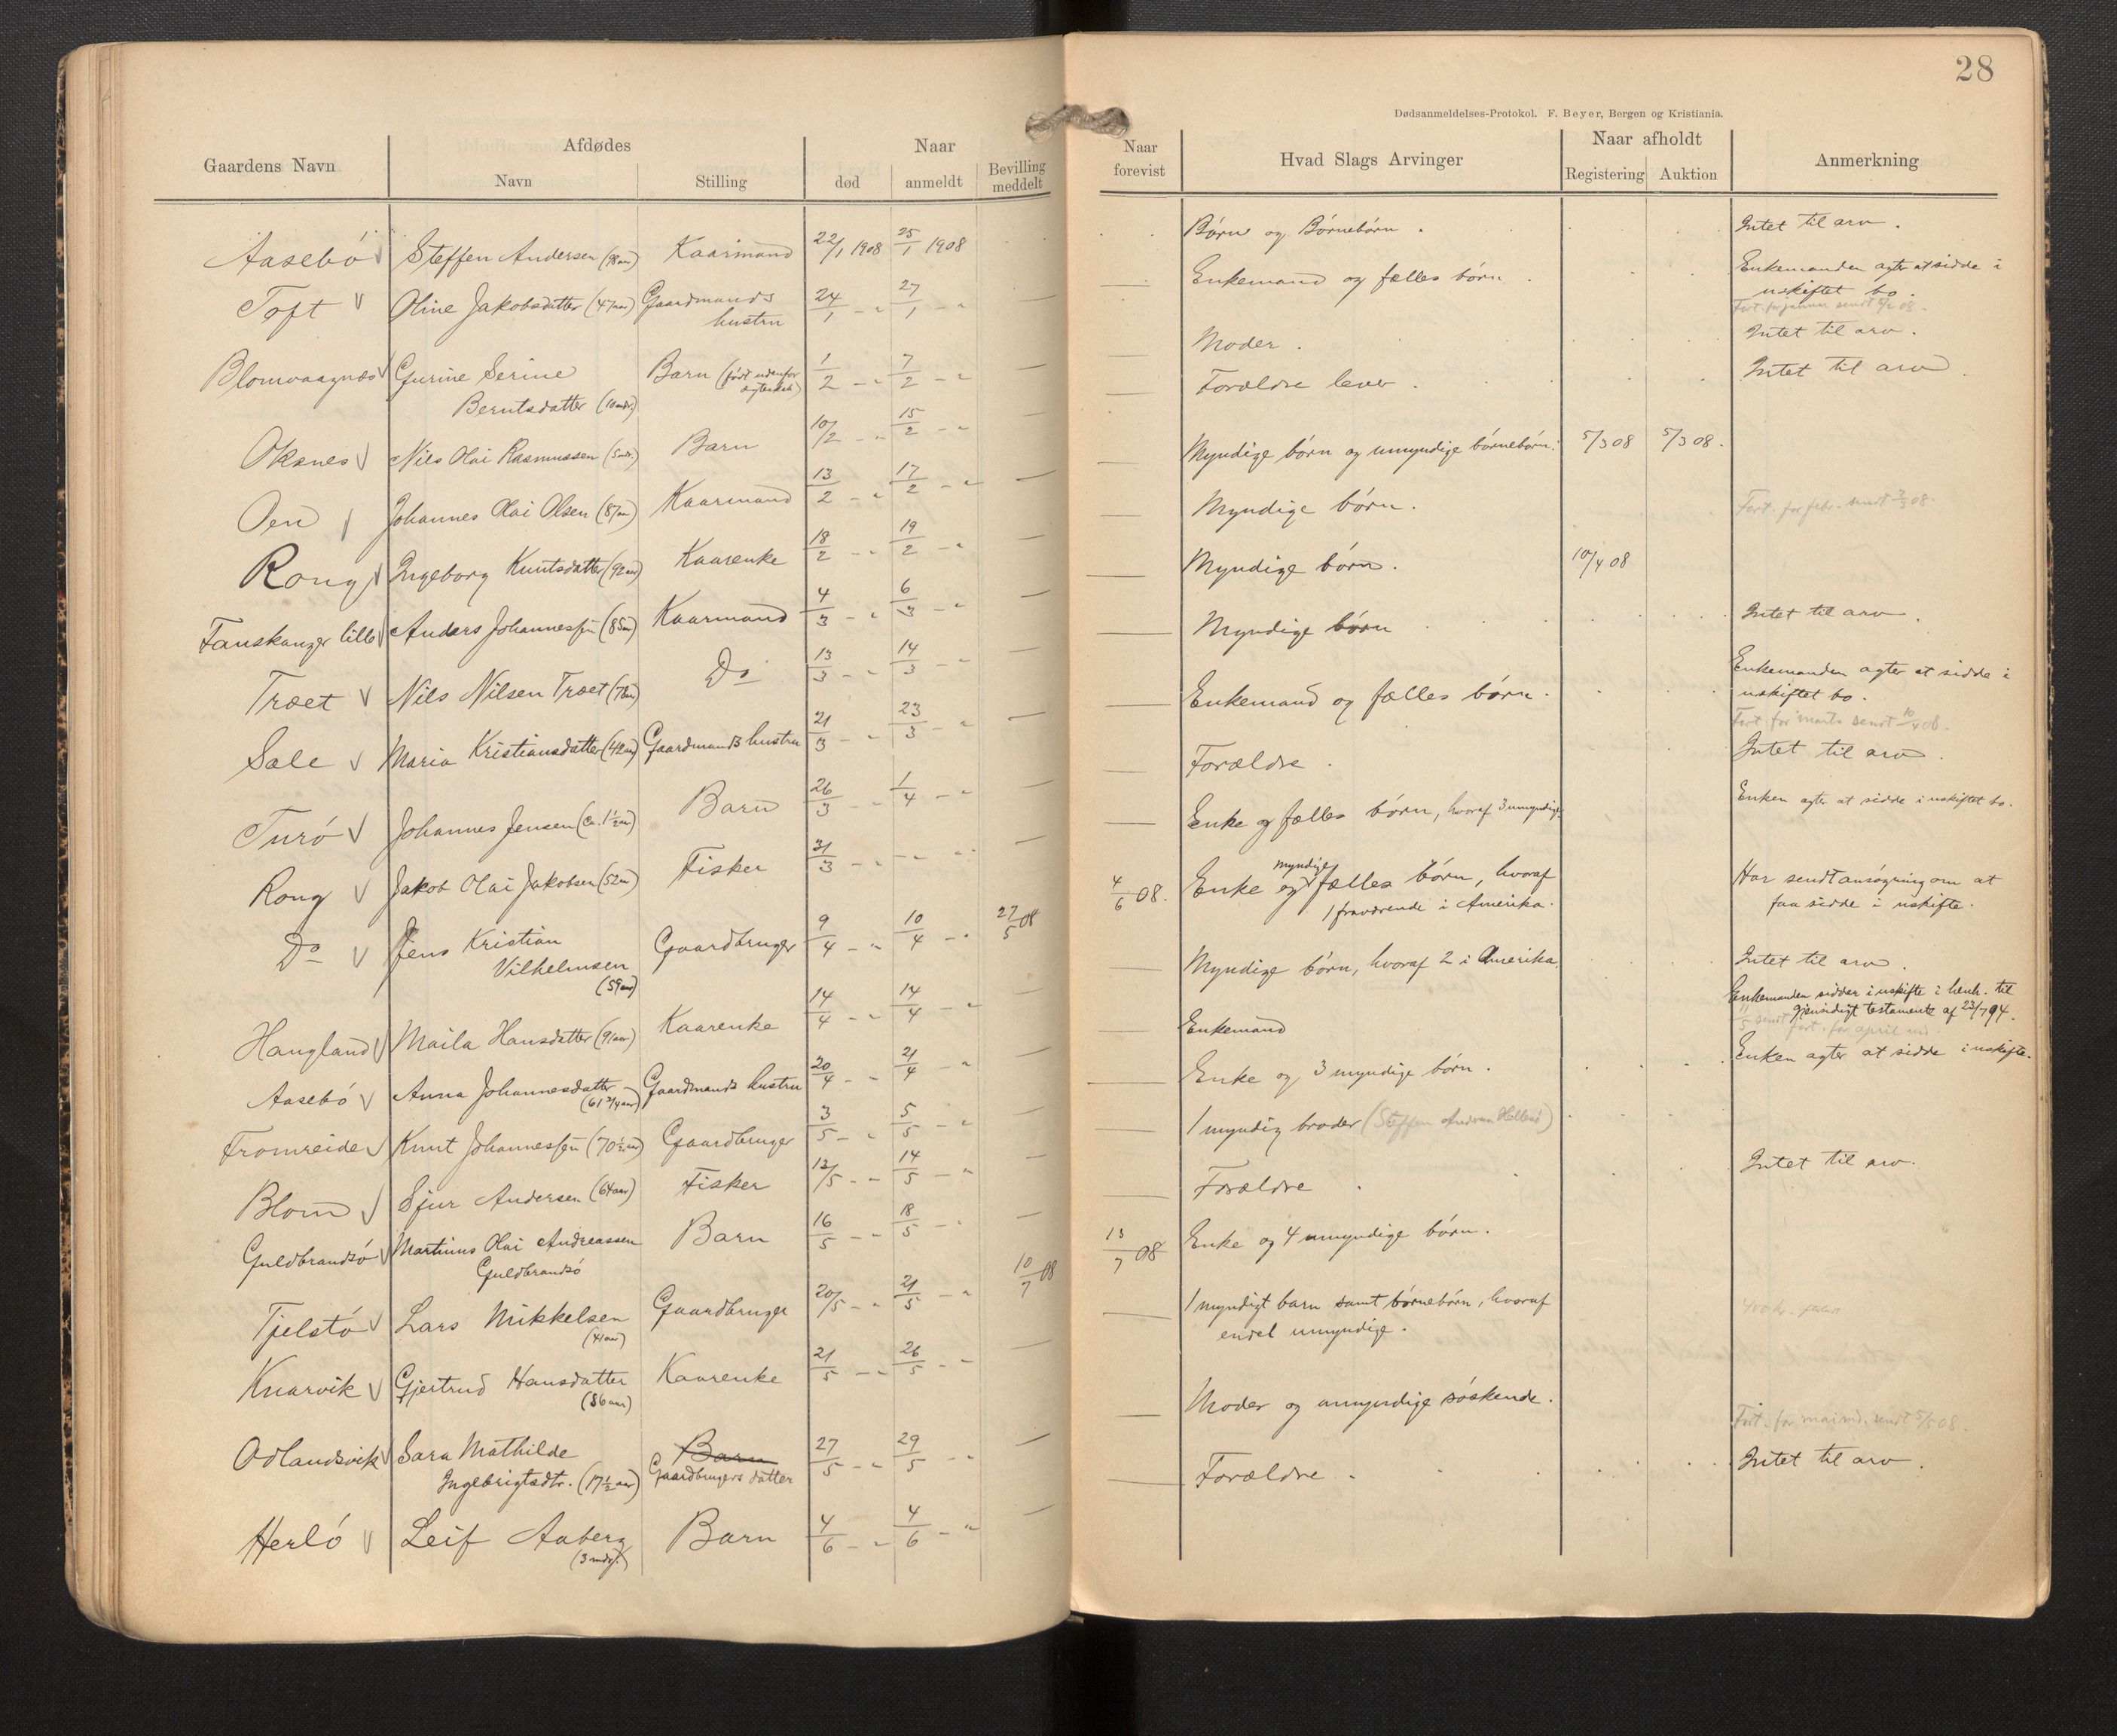 28
Dødsanmeldelses-Protokol. F. Beyer, Bergen og Kristiania.
Gaardens Navn
Afdødes
Navn
Stilling
Naar
død
anmeldt
Bevilling meddelt
Naar forevist
Hvad Slags Arvinger
Naar afholdt
Registering
Auktion
Anmerkning
Aasebö Steffen Andersen Kaarmand 22/1 1908 25/1 1908
Toft Oline Jakobsdatter (47 aar) Gaardmands
hustru 24/1 - " 27/1 - " —
Blomvaagnæs Gurine Serine Barn (født udenfor
ægteskab) 1/2 - " 7/2 - " —
Berntsdatter (10 mdr.)
Oksnes Nils Olai Rasmussen (5 mdr.) Barn 10/2 - " 15/2 - " —
Oen Johannes Olai Olsen (87 aar) Kaarmand 13/2 - " 17/2 - " —
Rong Ingeborg Knutsdatter (92 aar) Kaarenke 18/2 - " 19/2 - " —
Fauskanger lille Anders Johannessen (85 aar) Kaarmand 4/3 - " 6/3 - " —
Træet Nils Nilsen Træet (78 aar) Do 13/3 - " 14/3 - " —
Sæle Maria Kristiansdatter (42 aar) Gaardmands hustru 21/3 - " 23/3 - " —
Turö Johannes Jensen (ca. 1½ aar) Barn 26/3 - " 1/4 - " —
Rong Jakob Olai Jakobsen (52 aar) Fisker 31/3 - " - - " —
Do Jens Kristian
Vilhelmsen
(59 aar) Gaardbruger 9/4 - " 10/4 - " 27/5 08
Haugland Maila Hansdatter (91 aar) Kaarenke 14/4 - " 14/4 - " —
Aasebö Anna Johannesdatter
(61 3/4 aar) Gaardmands hustru 20/4 - " 21/4 - " —
Fromreide Knut Johannessen (70½ aar) Gaardbruger 3/5 - " 5/5 - " —
Blom Sjur Andersen (64 aar) Fisker 12/5 - " 14/5 - " —
Guldbrandsö Martinus Olai Andreassen
Guldbrandsö Barn 16/5 - " 18/5 - " —
Tjelstö Lars Mikkelsen
(41 aar) Gaardbruger 20/5 - " 21/5 - " 10/7 08
Knarvik Gjertrud Hansdatter
(86 aar) Kaarenke 21/5 - " 26/5 - " —
Odlandsvik Sara Mathilde Barn
Ingebrigtsdtr. (17½ aar) Gaardbrugers datter 27/5 - " 29/5 - " —
Herlö Leif Aaberg
(3 mdr.) Barn 4/6 - " 4/6 - " —
Börn og Börnebörn. Intet til arv.
— Enkemand og fælles börn. Enkemanden agter at sidde i
uskiftet bo.
— Moder. Intet til arv.
— Forældre lever. Intet til arv.
— Myndige börn og umyndige börnebörn. 5/3 08 5/3 08.
— Myndige börn. Fort. for febr. sendt 2/3 08.
— Myndige börn. 10/4 08
— Myndige börn Intet til arv.
— Enkemand og fælles börn. Enkemanden agter at sidde i
uskiftet bo.
Fort. for marts sendt 10/4 08.
— Forældre. Intet til arv.
— Enke og fælles börn, hvoraf 3 umyndige. Enken agter at sidde i uskiftet bo.
4/6 08. Enke og myndige fælles börn, hvoraf
1 fraværende i Amerika. Har sendt ansøgning om at
faa sidde i uskifte.
— Myndige börn, hvoraf 2 i Amerika. Intet til arv.
— Enkemand Enkemanden sidder i uskifte i henh. til
gjensidigt testamente af 23/7 94.
11/5 sendt fort. for april md.
— Enke og 3 myndige börn. Enken agter at sidde i uskifte.
— 1 myndig broder (Steffen Andersen)
— Forældre. Intet til arv.
13/7 08 Enke og 4 umyndige börn.
— 1 myndigt barn samt börnebörn, hvoraf
endel umyndige.
— Moder og umyndige söskende.
Fort. for mai md. sendt 08.
— Forældre. Intet til arv.